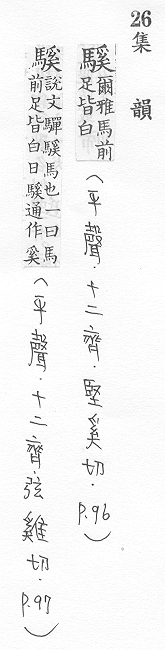 26集韻
騱爾雅馬前足皆白(平聲.十二齊.堅奚切.P.96)
騱說文驒騱馬也一曰馬前足皆白曰騱通作奚(平聲.十二齊.弦雞切.P.97)